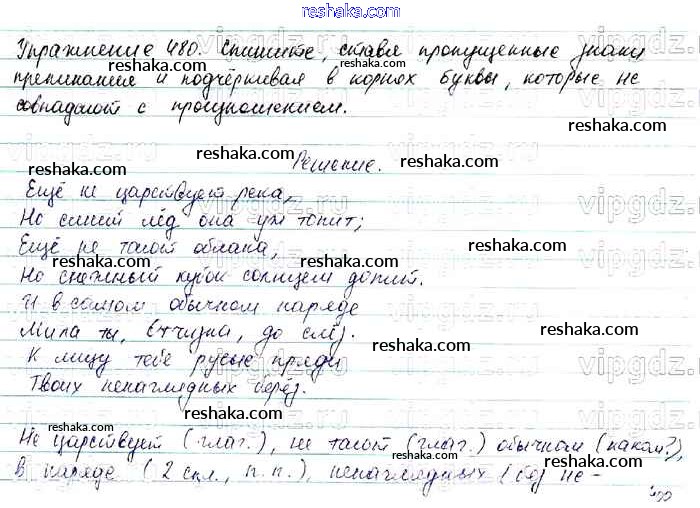 reshaka.com
Упражнение 480. Спишите, ставя пропущенные знаки
препинания и подчёркивая в корнях буквы, которые не
совпадают с произношением.
reshaka.com
reshaka.com
reshaka.com
reshaka.com
vipgdz.ru
vipgdz.ru
Решение.
reshaka.com
reshaka.com
Ещё не царствует река,
Но синий лёд она уж топит;
Ещё не тают облака,
Но снежный кубок солнцем допит.
И в самом обычном наряде
Мила ты, Отчизна, до слёз.
К лицу тебе русые пряди
Твоих ненаглядных берёз.
reshaka.com
reshaka.com
reshaka.com
reshaka.com
reshaka.com
reshaka.com
vipgdz.ru
Не царствует (глаг.), не тают (глаг.) обычном (каком?),
в наряде (2 скл., П.п.), ненаглядных (без не-
reshaka.com
reshaka.com
reshaka.com